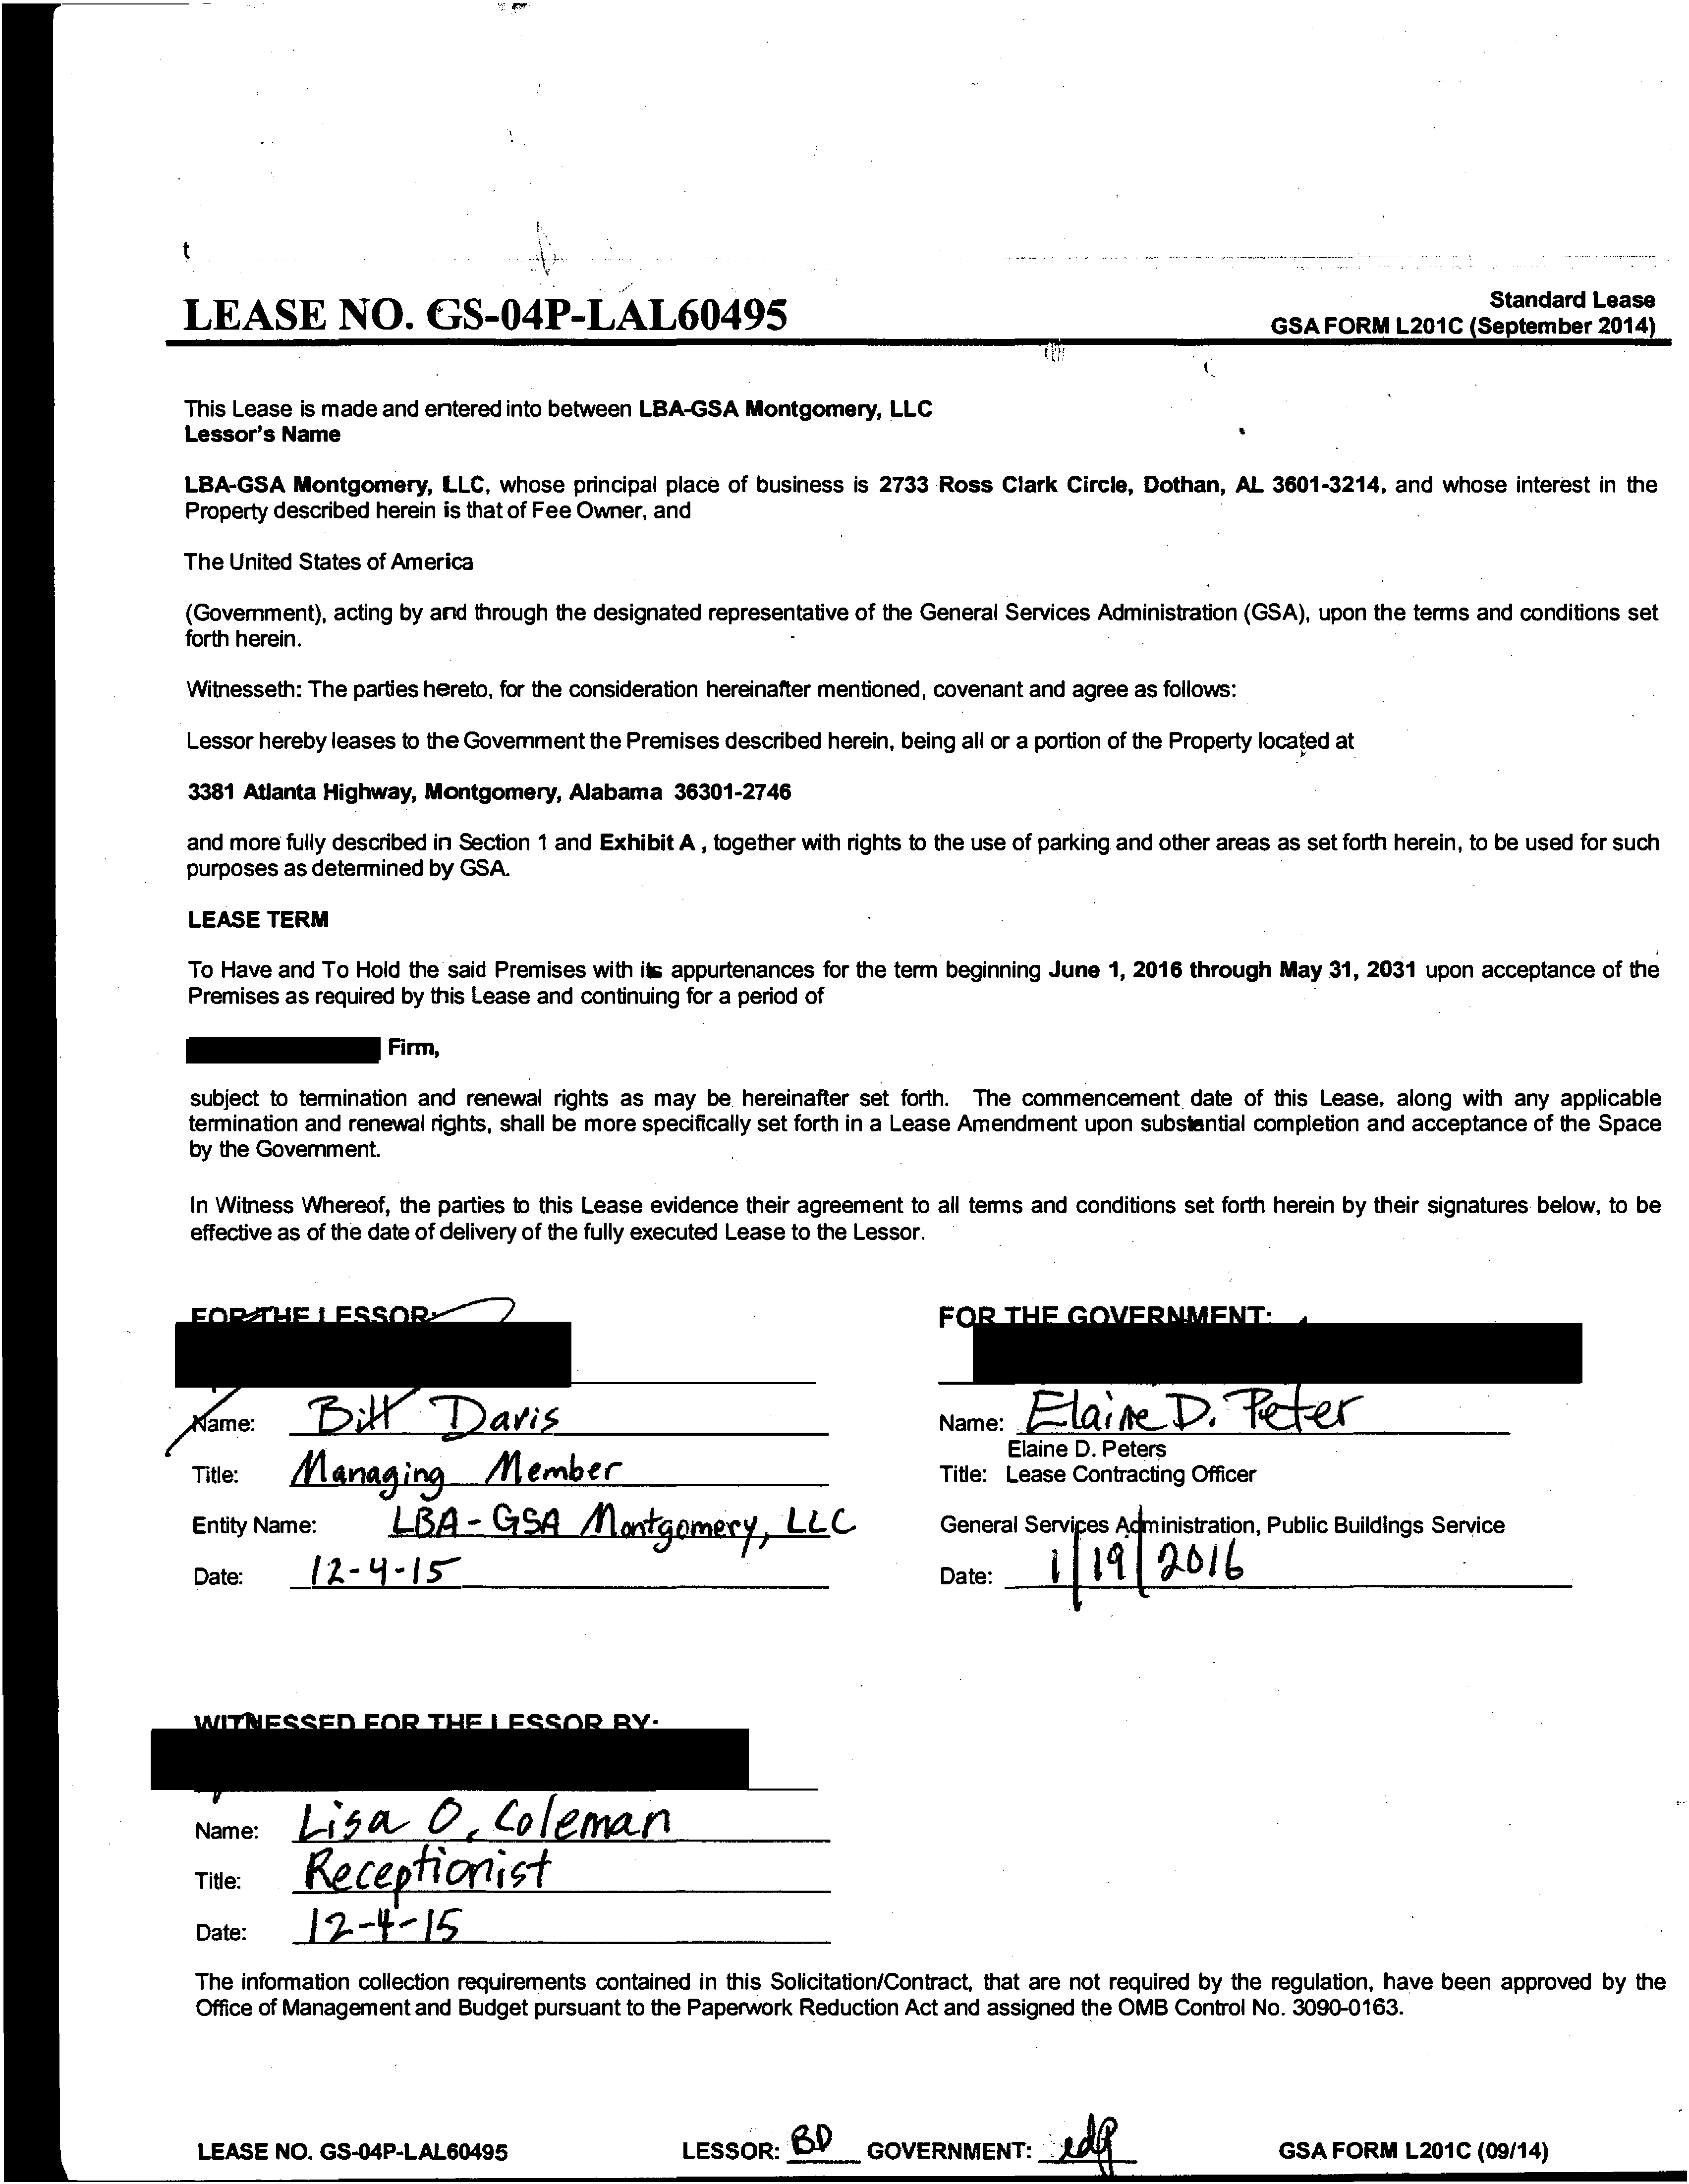 t
LEASE NO. GS-04P-LAL60495
Standard Lease
GSA FORM L201C (September 2014)
This Lease is made and entered into between LBA-GSA Montgomery, LLC
Lessor's Name
LBA-GSA Montgomery, LLC, whose principal place of business is 2733 Ross Clark Circle, Dothan, AL 3601-3214, and whose interest in the
Property described herein is that of Fee Owner, and
The United States of America
(Government), acting by and through the designated representative of the General Services Administration (GSA), upon the terms and conditions set
forth herein.
Witnesseth: The parties hereto, for the consideration hereinafter mentioned, covenant and agree as follows:
Lessor hereby leases to the Government the Premises described herein, being all or a portion of the Property located at
3381 Atlanta Highway, Montgomery, Alabama 36301-2746
and more fully described in Section 1 and Exhibit A , together with rights to the use of parking and other areas as set forth herein, to be used for such
purposes as determined by GSA.
LEASE TERM
To Have and To Hold the said Premises with its appurtenances for the term beginning June 1, 2016 through May 31, 2031 upon acceptance of the
Premises as required by this Lease and continuing for a period of
Firm,
subject to termination and renewal rights as may be hereinafter set forth. The commencement date of this Lease, along with any applicable
termination and renewal rights, shall be more specifically set forth in a Lease Amendment upon substantial completion and acceptance of the Space
by the Government.
In Witness Whereof, the parties to this Lease evidence their agreement to all terms and conditions set forth herein by their signatures below, to be
effective as of the date of delivery of the fully executed Lease to the Lessor.
FOR THE LESSOR:
Name: Bill Davis
Title: Managing Member
Entity Name: LBA-GSA Montgomery, LLC
Date: 12-4-15
FOR THE GOVERNMENT:
Name: Elaine D. Peter
Elaine D. Peters
Title: Lease Contracting Officer
General Services Administration, Public Buildings Service
Date: 1/19/2016
WITNESSED FOR THE LESSOR BY:
Name: Lisa O. Coleman
Title: Receptionist
Date: 12-4-15
The information collection requirements contained in this Solicitation/Contract, that are not required by the regulation, have been approved by the
Office of Management and Budget pursuant to the Paperwork Reduction Act and assigned the OMB Control No. 3090-0163.
LEASE NO. GS-04P-LAL60495 LESSOR: BD GOVERNMENT: edp GSA FORM L201C (09/14)